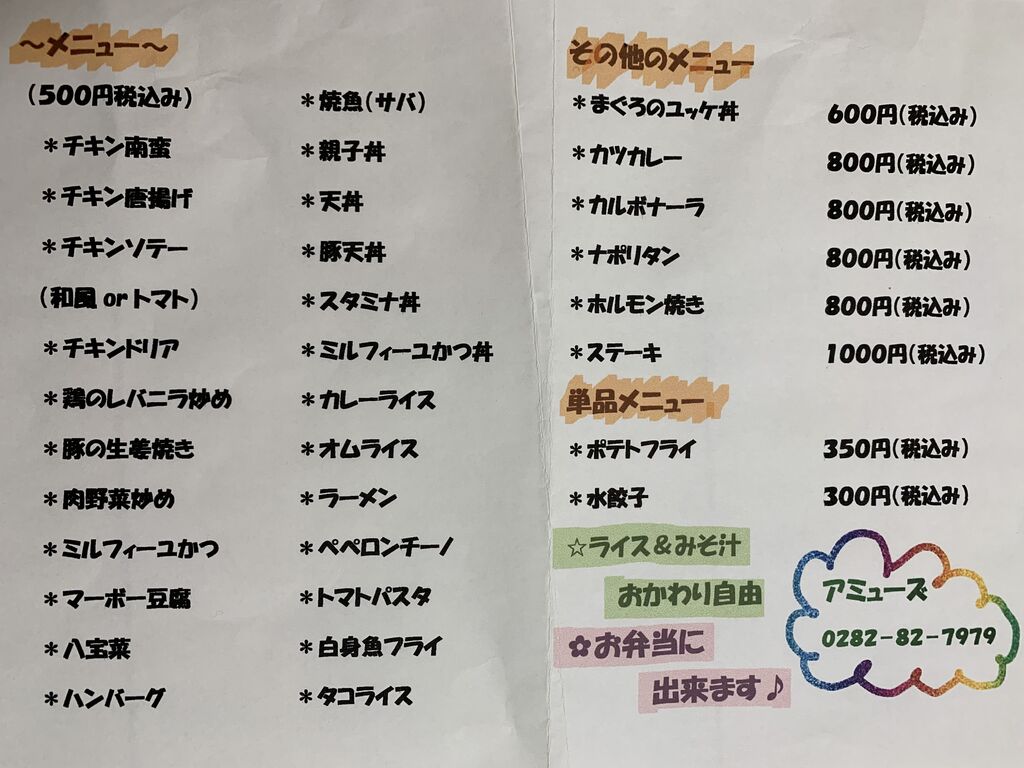 ～メニュー～
(500円税込み)
＊チキン南蛮
＊チキン唐揚げ
＊チキンソテー
(和風 or トマト)
＊チキンドリア
＊鶏のレバニラ炒め
＊豚の生姜焼き
＊肉野菜炒め
＊ミルフィーユかつ
＊マーボー豆腐
＊八宝菜
＊ハンバーグ
＊焼魚(サバ)
＊親子丼
＊天丼
＊豚天丼
＊スタミナ丼
＊ミルフィーユかつ丼
＊カレーライス
＊オムライス
＊ラーメン
＊ペペロンチーノ
＊トマトパスタ
＊白身魚フライ
＊タコライス
その他のメニュー
＊まぐろのユッケ丼 600円(税込み)
＊カツカレー 800円(税込み)
＊カルボナーラ 800円(税込み)
＊ナポリタン 800円(税込み)
＊ホルモン焼き 800円(税込み)
＊ステーキ 1000円(税込み)
単品メニュー
＊ポテトフライ 350円(税込み)
＊水餃子 300円(税込み)
☆ライス＆みそ汁
おかわり自由
✿お弁当に
出来ます♪
アミューズ
0282-82-7979